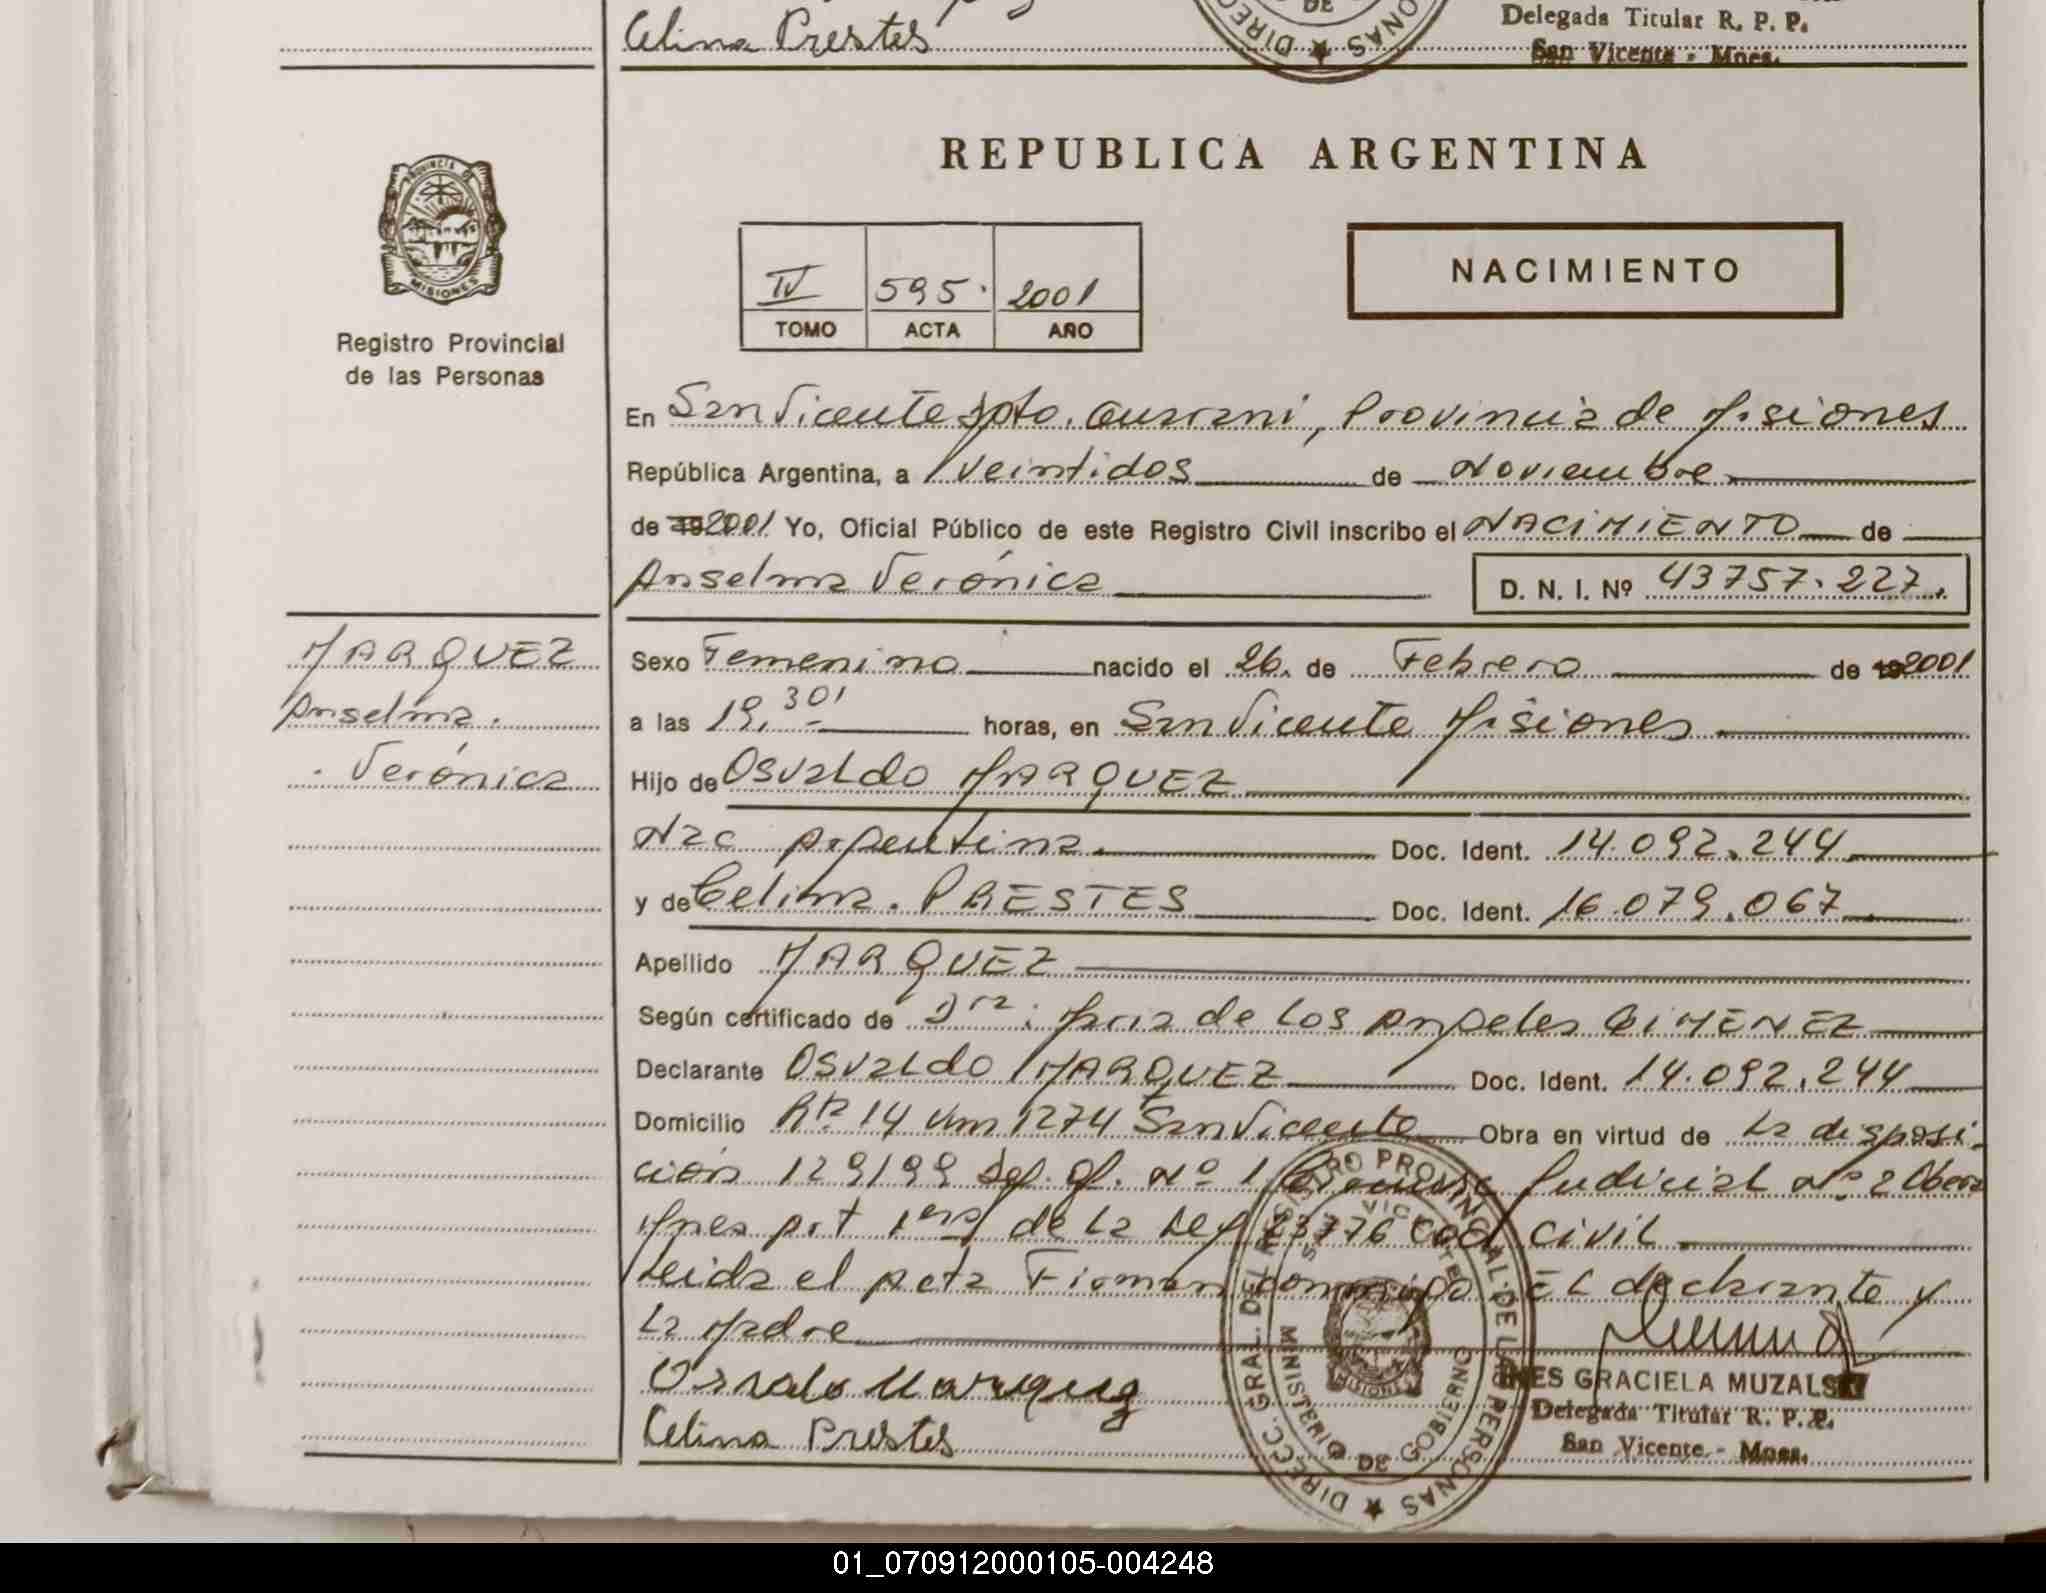 Celina Prestes
Delegada Titular R. P. P.
San Vicente - Mnes.
DE
PROVINCIA DE
MISIONES
Registro Provincial
de las Personas
REPUBLICA ARGENTINA
IV 595. 2001
TOMO ACTA AÑO
NACIMIENTO
En San Vicente Dpto. Guarani, Provincia de Misiones
República Argentina, a Veintidos de Noviembre
de 19 2001 Yo, Oficial Público de este Registro Civil inscribo el NACIMIENTO de
Anselma Verónica D. N. I. Nº 43757.227.
MARQUEZ
Anselma.
Verónica
Sexo Femenino nacido el 26. de Febrero de 19 2001
a las 19,30' horas, en San Vicente Misiones
Hijo de Osvaldo MARQUEZ
Nac Argentina. Doc. Ident. 14.092.244
y de Celina. PRESTES Doc. Ident. 16.079.067
Apellido MARQUEZ
Según certificado de Dra: Maria de Los Angeles GIMENEZ
Declarante Osvaldo MARQUEZ Doc. Ident. 14.092.244
Domicilio Rta 14 Km 1274 San Vicente Obra en virtud de La disposi-
ción 129/99 Def. Of. Nº 1 Judicial Nº 2 Obera
Mnes Art 1ero de La Ley 23776 Cod. Civil
Leida el Acta Firman conmigo EL declarante y
La Madre
Osvaldo Marquez
Celina Prestes
DIRECC. GRAL. DEL REGISTRO PROVINCIAL DE LAS PERSONAS
SAN VICENTE
MINISTERIO DE GOBIERNO
MISIONES
INES GRACIELA MUZALSKI
Delegada Titular R. P. P.
San Vicente - Mnes.
01_070912000105-004248